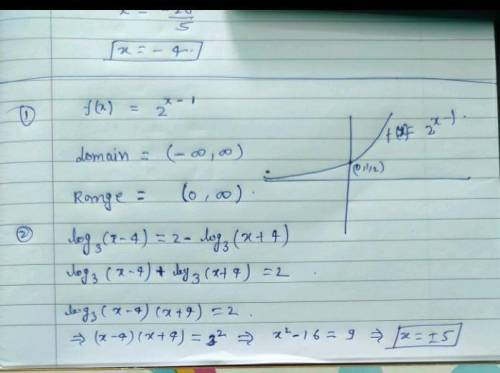 5
x = - 4.
① f(x) = 2^{x-1}
domain = (-∞, ∞)
Range = (0, ∞).
f(x) = 2^{x-1}.
(0, 1/2)
② log₃(x-4) = 2 - log₃(x+4)
log₃(x-4) + log₃(x+4) = 2.
log₃(x-4)(x+4) = 2.
⇒ (x-4)(x+4) = 3² ⇒ x² - 16 = 9 ⇒ x = ±5